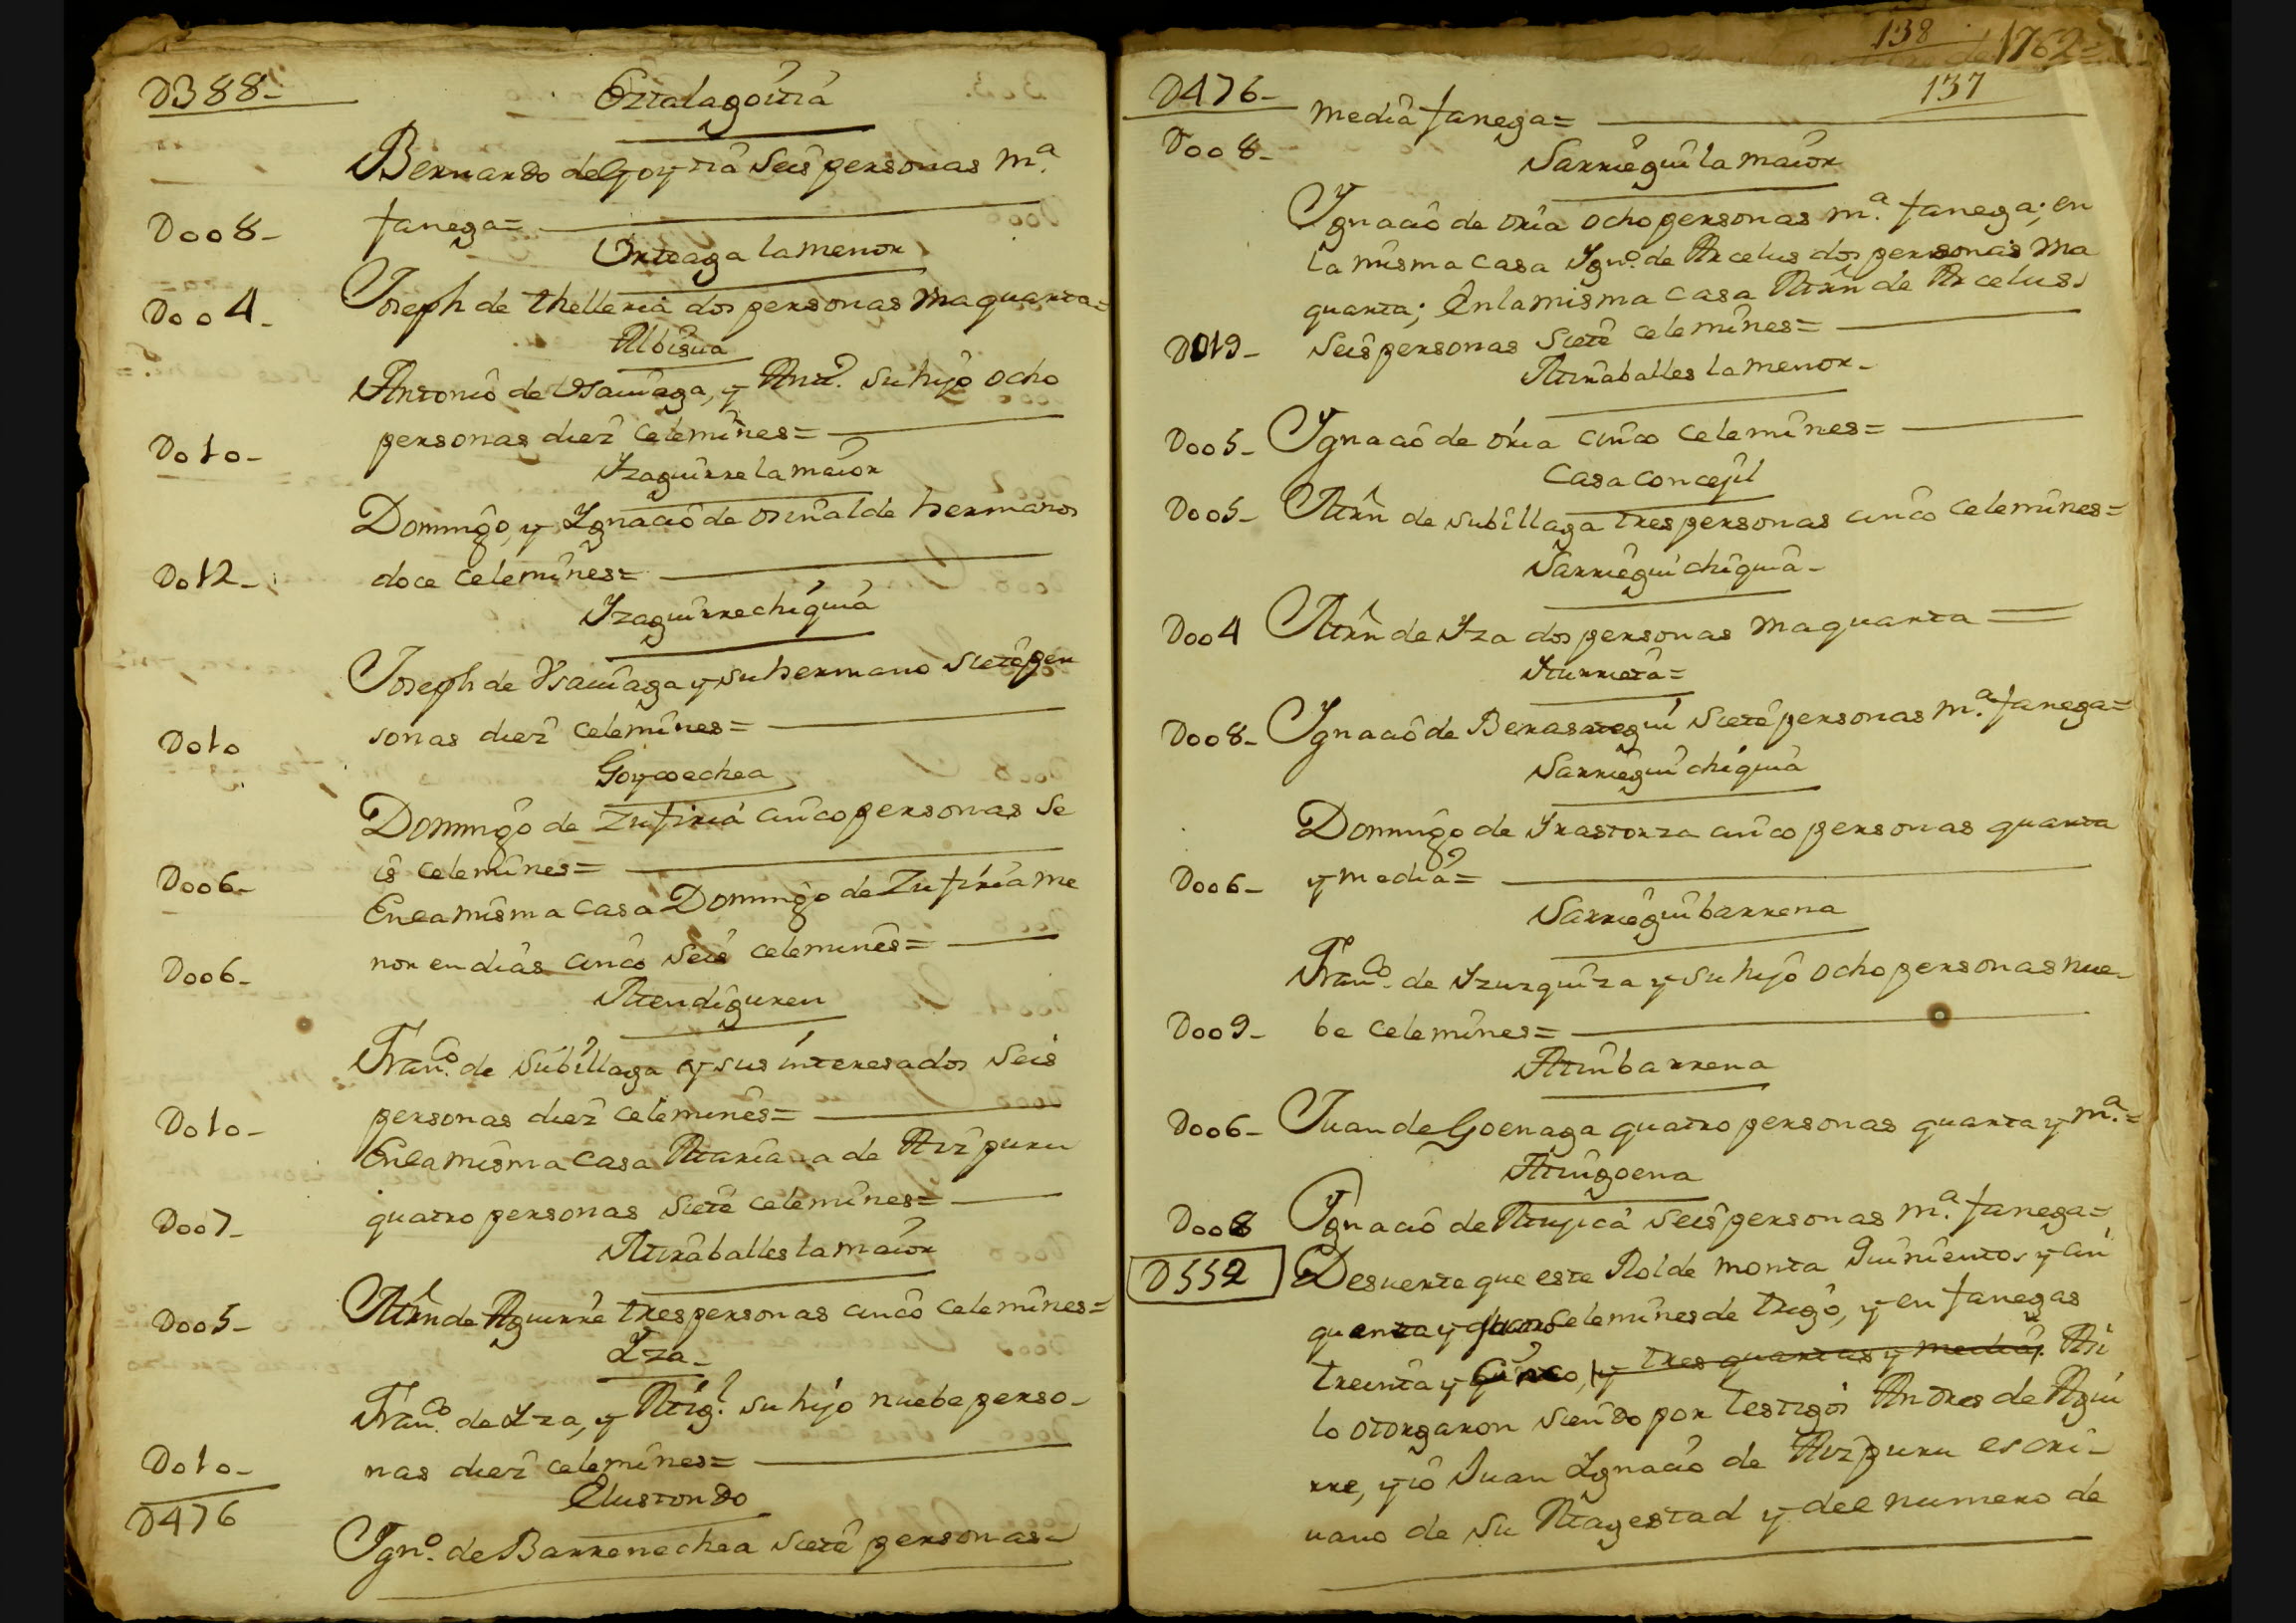 D388-
Oztalagoitiâ
Bernardo de Goytiâ Seis personas mª
D008- fanega=
Orteaga la menor
D004- Joseph de thelleria dos personas Maquarta=
Albisua
Antonio de Vsauiaga, y Antº. su hijo ocho
D010- personas diez celemines=
Yzaguirre la maior
Domingo, y Ygnacio de osinalde hermanos
D012- doce celemines=
Yzaguirrechiquia
Joseph de Vsauiaga y su hermano siete per
D010 sonas diez celemines=
Goycoechea
Domingo de Zufiria cinco personas se
D006- is celemines=
En la misma casa Domingo de Zufiria me
D006- nor en dias cinco seis celemines=
Mendiguren
Franco. de Subillaga y sus interesados seis
D010- personas diez celemines=
En la misma casa Mariana de Aizpuru
D007- quatro personas siete celemines=
Miraballes la maior
D005- Mrn de Aguirre tres personas cinco celemines=
Yza-
Franco. de Yza, y Migl. su hijo nuebe perso-
D010- nas diez celemines=
D476
Elustondo
Ignº. de Barrenechea siete personas
138
de 1762=
137
D476-
D008- media fanega=
Sarriegui la maior
Ygnacio de oria ocho personas mª. fanega; en
la misma casa Ygnº. de Arcelus dos personas ma
quarta; En la misma casa Mrn de Arcelus
D019- seis personas siete celemines=
Miraballes la menor-
D005- Ygnacio de oria cinco celemines=
Casa concejil
D005- Mrn de subillaga tres personas cinco celemines=
Sarriegui chiquia-
D004 Mrn de Yza dos personas maquarta=
Yturrieta=
D008- Ygnacio de Berasategui siete personas mª. fanega=
Sarriegui chiquia
Domingo de Yrastorza cinco personas quarta
D006- y media=
Sarrieguibarrena
Franco. de Yzurquiza y su hijo ocho personas nue-
D009- be celemines=
Atinbarrena
D006- Juan de Goenaga quatro personas quarta y mª.=
Atingoena
D008 Ygnacio de Mujica seis personas mª. fanega=
D552 De suerte que este Rolde monta Quinientos y cin
quenta y celemines de trigo, y en fanegas
treinta y cinco, y tres quartas y media. Asi
lo otorgaron siendo por testigos Andres de Agui
rre, y io Juan Ygnacio de Aizpuru escri-
uano de su Magestad y del numero de